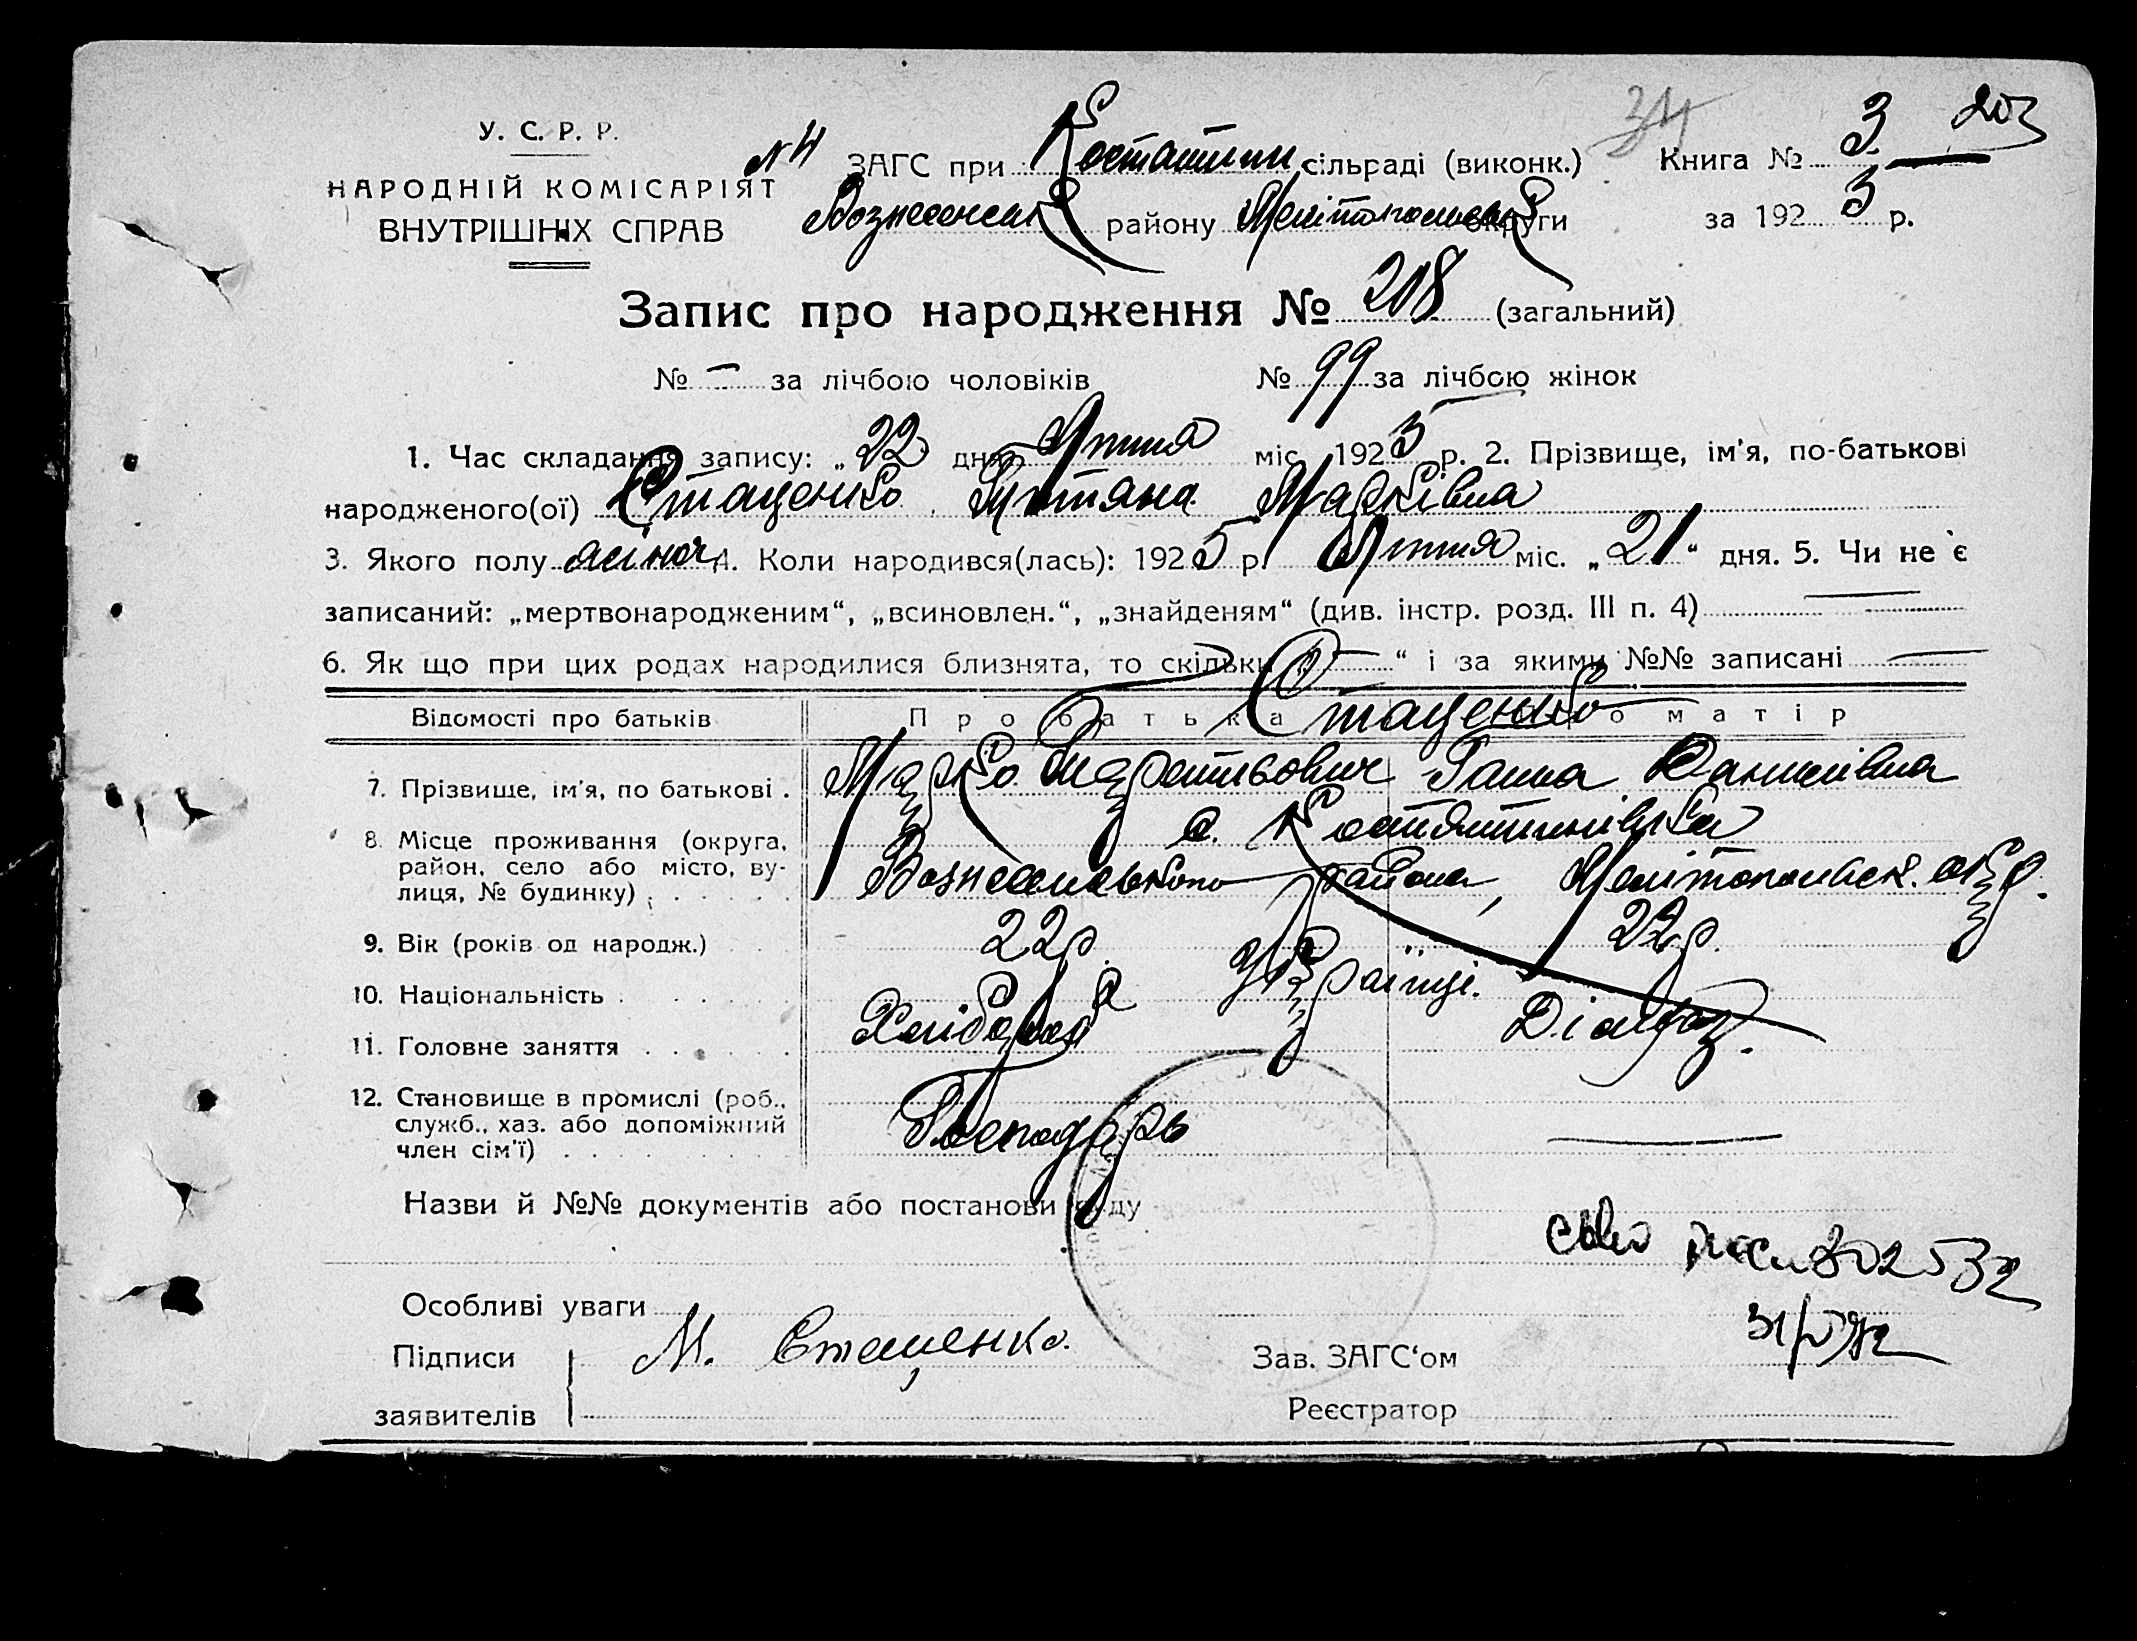 У. С. Р. Р.
НАРОДНІЙ КОМІСАРІЯТ
ВНУТРІШНІХ СПРАВ
34
203
N 4 ЗАГС при Костантин. сільраді (виконк.) Книга № 3
Вознесенськ району Мелітопольськ округи за 1925 р.
Запис про народження № 208 (загальний)
№ — за лічбою чоловіків № 99 за лічбою жінок
1. Час складання запису: „22 дня міс. 1925 р. 2. Прізвище, ім'я, по-батькові
народженого(ої) Стаценко Тітяна Марківна
3. Якого полу жіноч 4. Коли народився(лась): 1925 р. міс. „21“ дня. 5. Чи не є
записаний: „мертвонародженим“, „всиновлен.“, „знайденям“ (див. інстр. розд. III п. 4) —
6. Як що при цих родах народилися близнята, то скільки — “ і за якими №№ записані —
Відомості про батьків Про батька Про матір
Стаценко
7. Прізвище, ім'я, по батькові . Марко Ганна Данилівна
8. Місце проживання (округа, район, село або місто, вулиця, № будинку) с. Костянтинівка
Вознесенського района, Мелітопольськ. окр.
9. Вік (років од народж.) 22 р. 22 р.
10. Національність . Українці.
11. Головне заняття Хлібороб
12. Становище в промислі (роб.,
служб., хаз. або допоміжний
член сім'ї) Господарь —
Назви й №№ документів або постанови суду
302532
Особливі уваги
Підписи М. Стаценко. Зав. ЗАГС'ом
заявителів Реєстратор